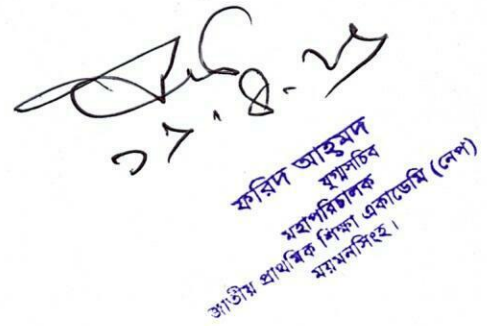 ফরিদ আহমদ
যুগ্মসচিব
মহাপরিচালক
জাতীয় প্রাথমিক শিক্ষা একাডেমি (নেপ)
ময়মনসিংহ।